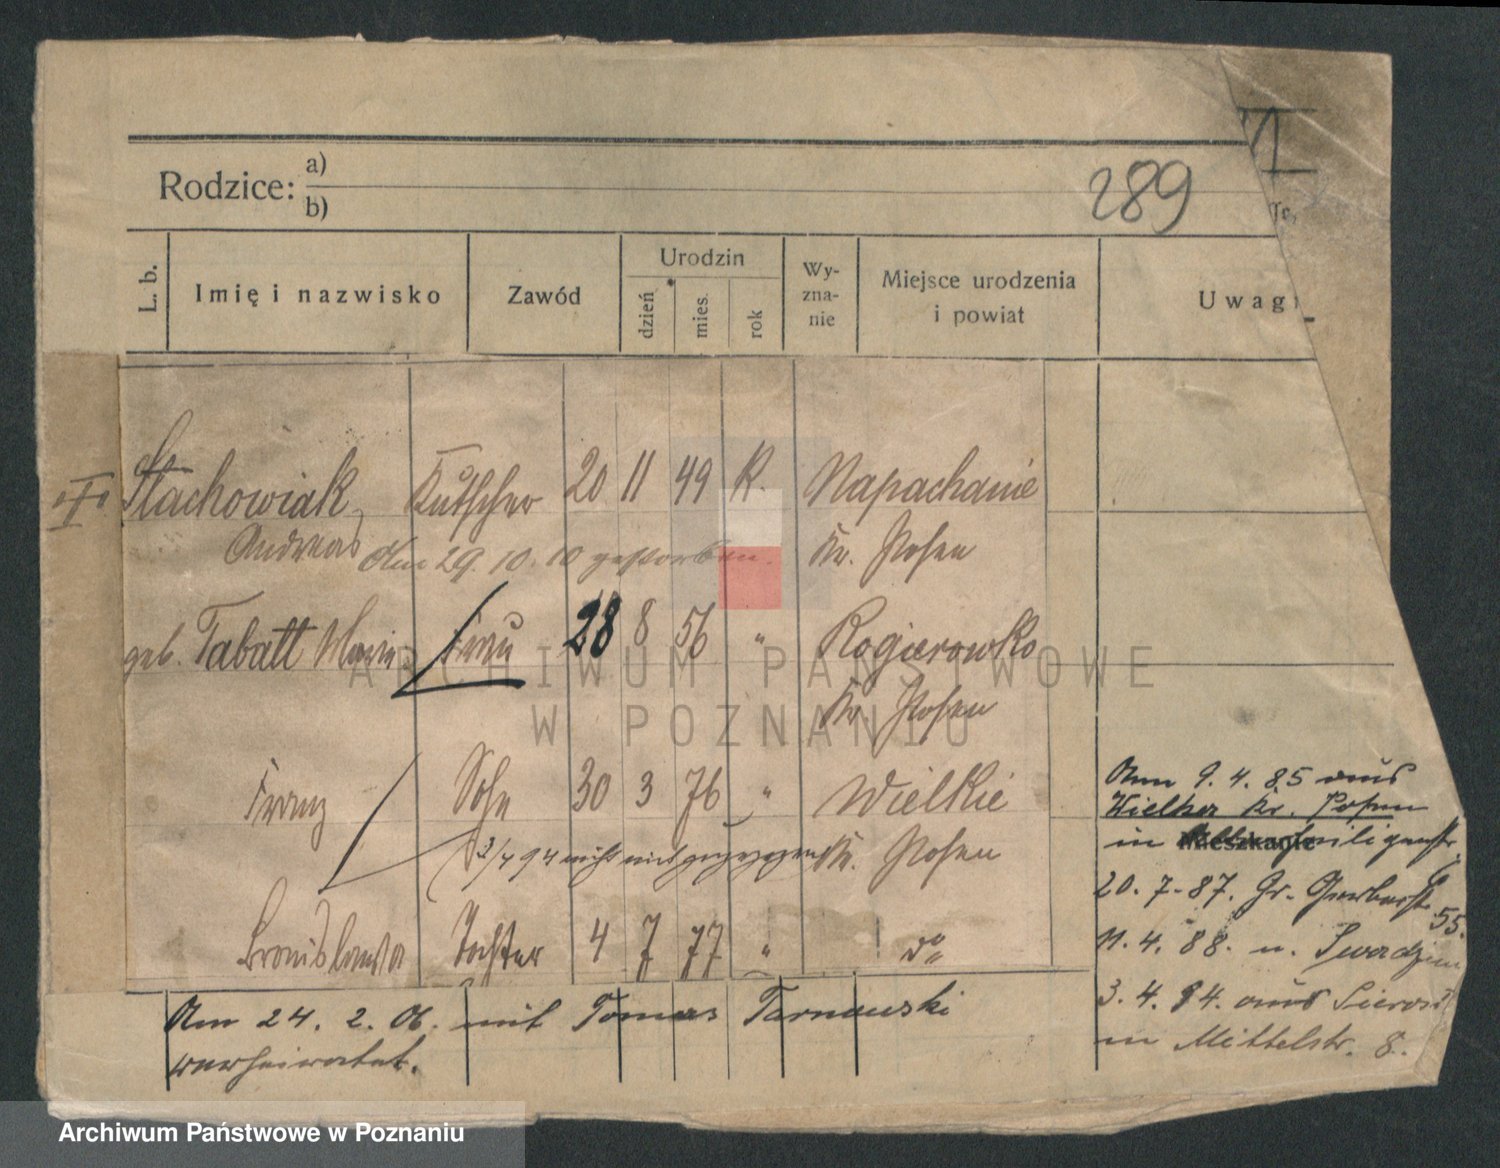 Rodzice: a)
b)
289
L. b.
Imię i nazwisko
Zawód
Urodzin
dzień
mies.
rok
Wy-
zna-
nie
Miejsce urodzenia
i powiat
Uwagi
Stachowiak, Kutscher 20 11 49 K. Napachanie
Andreas Am 29.10.10 gestorben. Kr. Posen
geb. Tabatt Marie Frau 28 8 56 " Rogierowko
Kr. Posen
Franz Sohn 30 3 76 " Wielkie
3/4 94 nicht mit gezogen Kr. Posen
Bronislawa Tochter 4 7 77 " do
Am 24. 2. 06. mit Tomas Tarnowski
verheiratet.
Am 9. 4. 85 aus
Kr. Posen
in
Mieszkanie
20. 7. 87. Gr. Gerberstr.
55.
11. 4. 88. n.
3. 4. 94. aus
in Mittelstr. 8.
ARCHIWUM PAŃSTWOWE
W POZNANIU
Archiwum Państwowe w Poznaniu